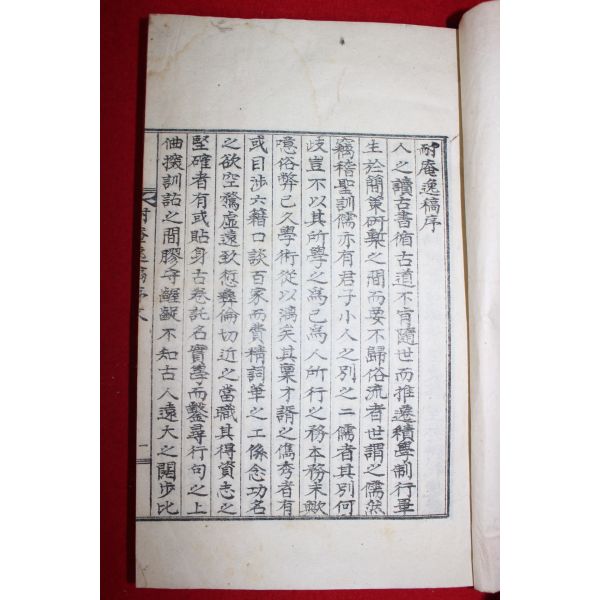 耐庵逸稿序
人之讀古書循古道不肯隨世而推遷績學制行畢
生於簡策研槧之間而要不歸俗流者世謂之儒然
竊稽聖訓儒亦有君子小人之別之二儒者其別何
歧豈不以其所學之爲己爲人所行之務本務末歟
噫俗弊已久學術從以漓矣其稟才諝之儁秀者有
或目涉六籍口談百家而費精詞筆之工係念功名
之欲空騖虛遠致愆彝倫切近之當職其得資志之
堅確者有或貼身古卷託名實學而鑿尋行句之上
曲摉訓詁之間膠守齷齪不知古人遠大之闊步比
耐庵逸稿序 一